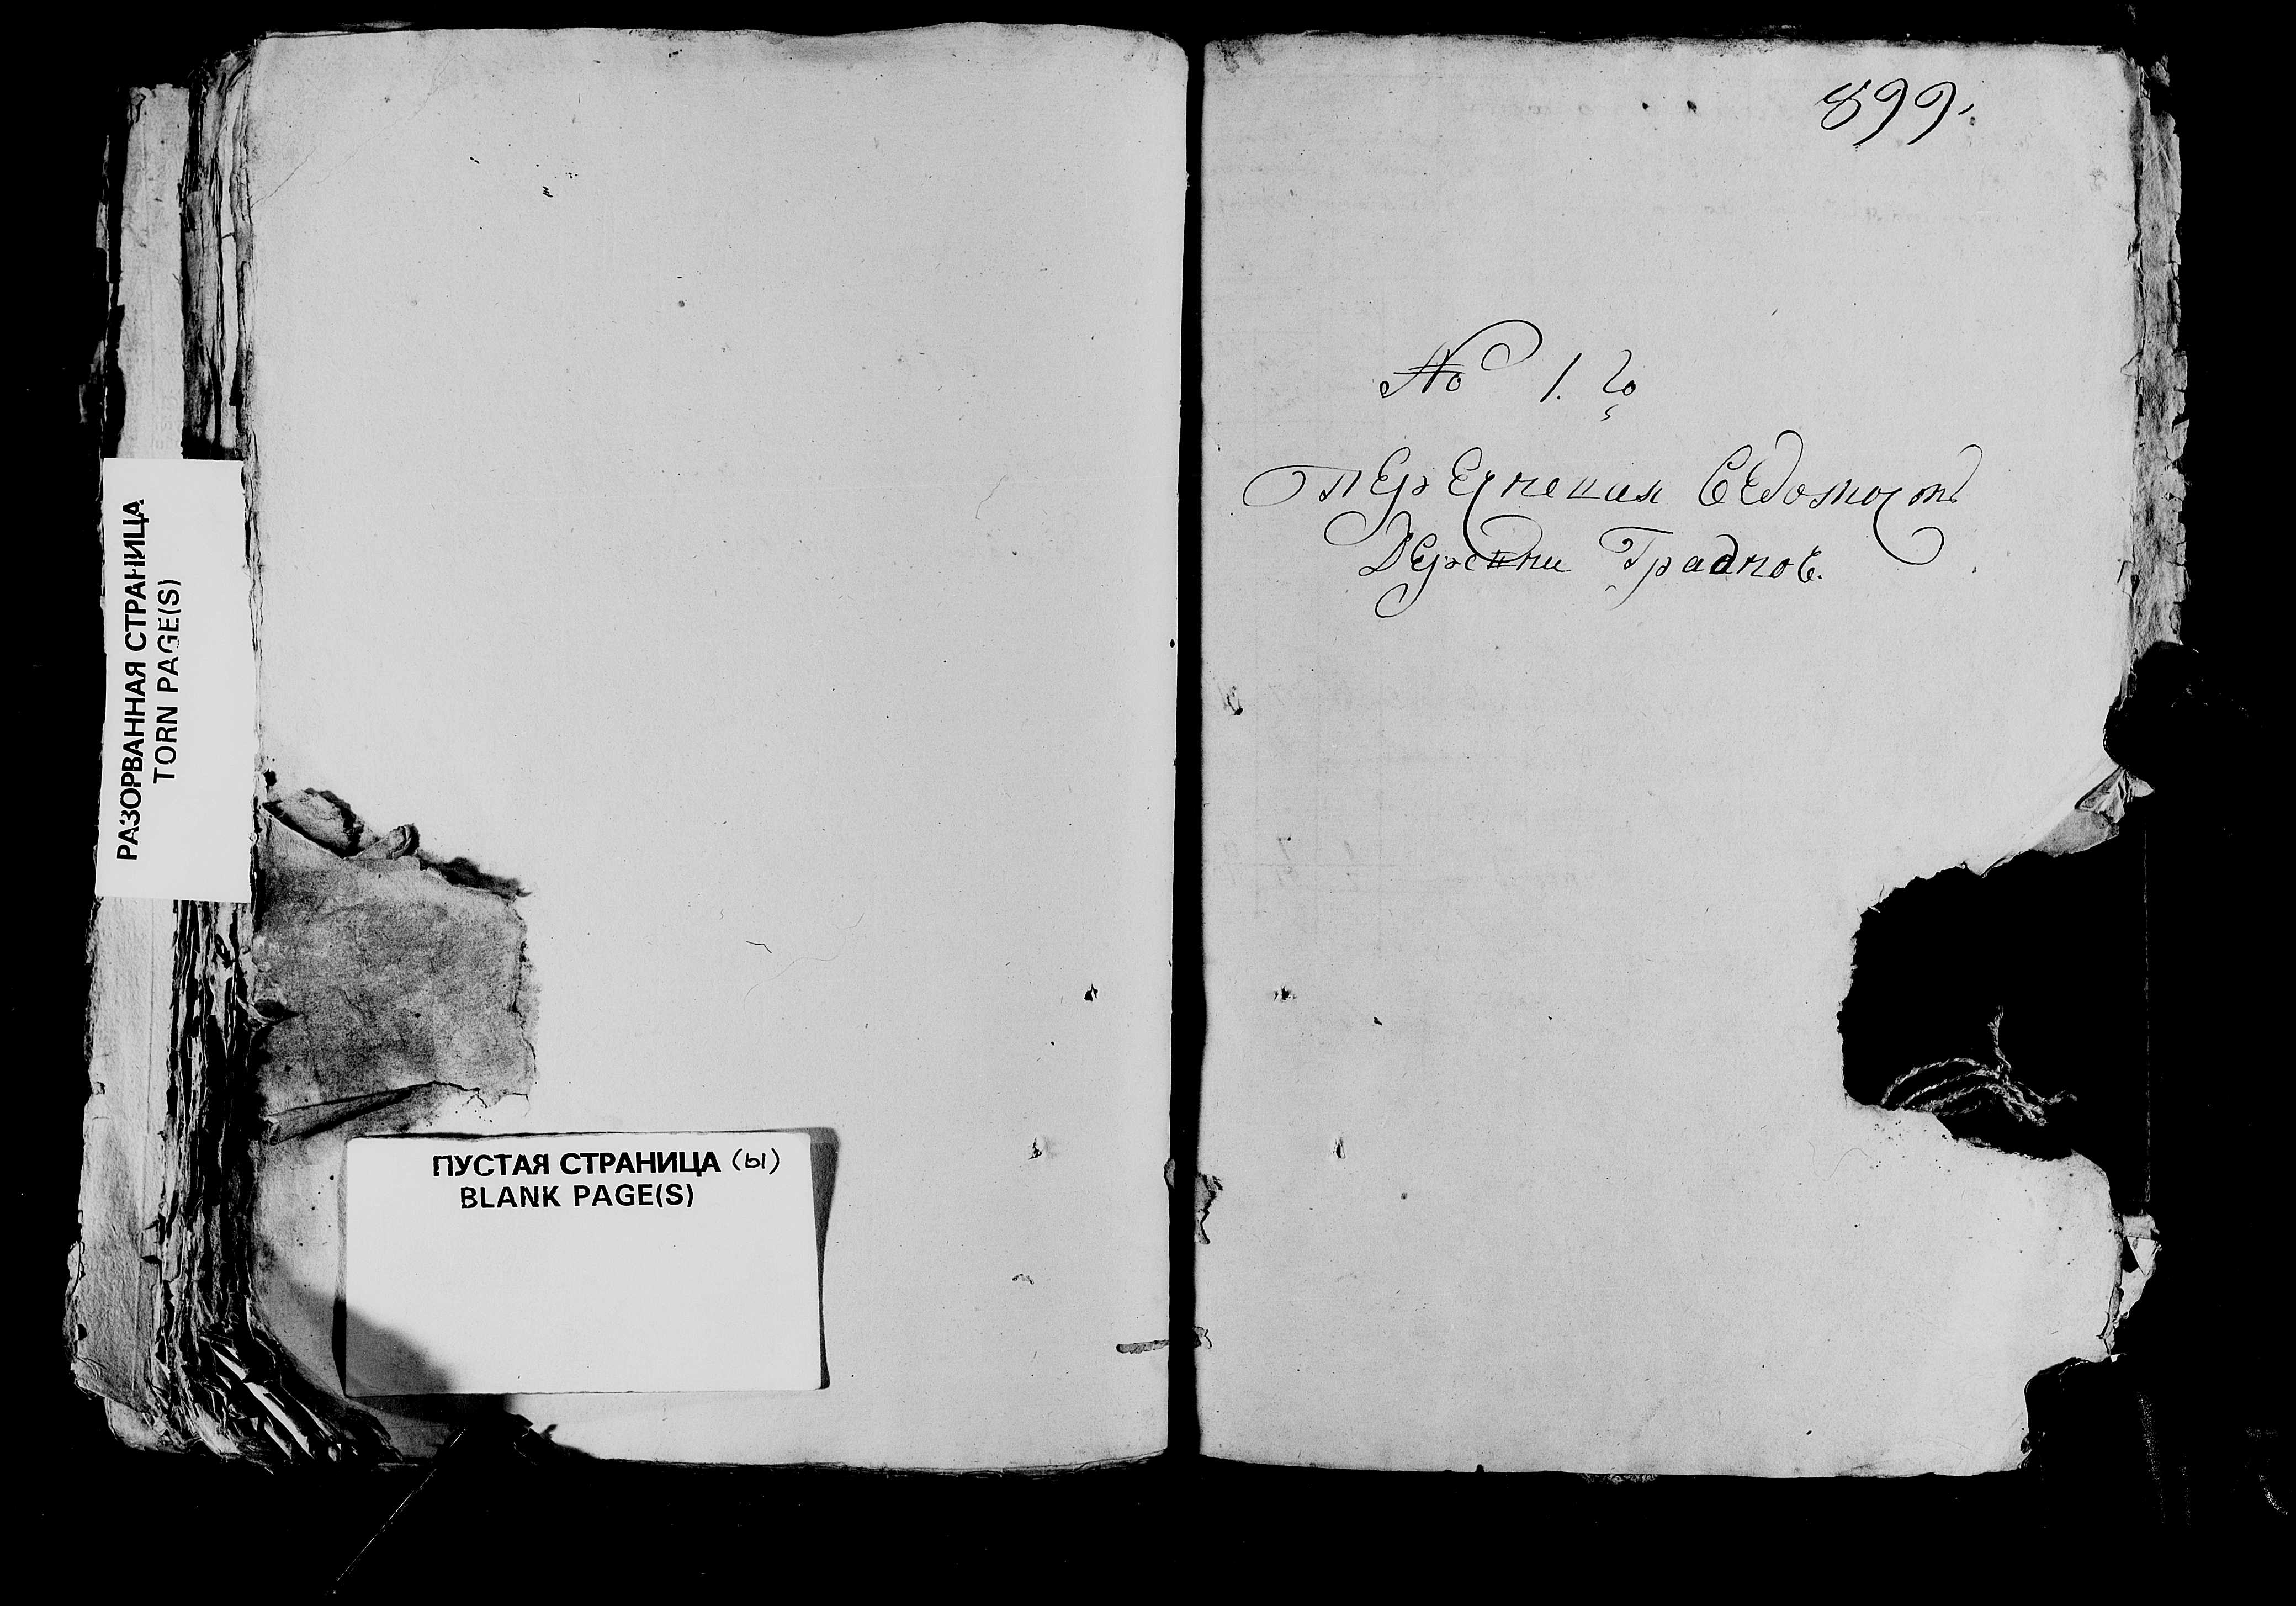 РАЗОРВАННАЯ СТРАНИЦА
TORN PAGE(S)
ПУСТАЯ СТРАНИЦА (ы)
BLANK PAGE(S)
899.
№ 1. го
Перечневая Ведомость
Деревни